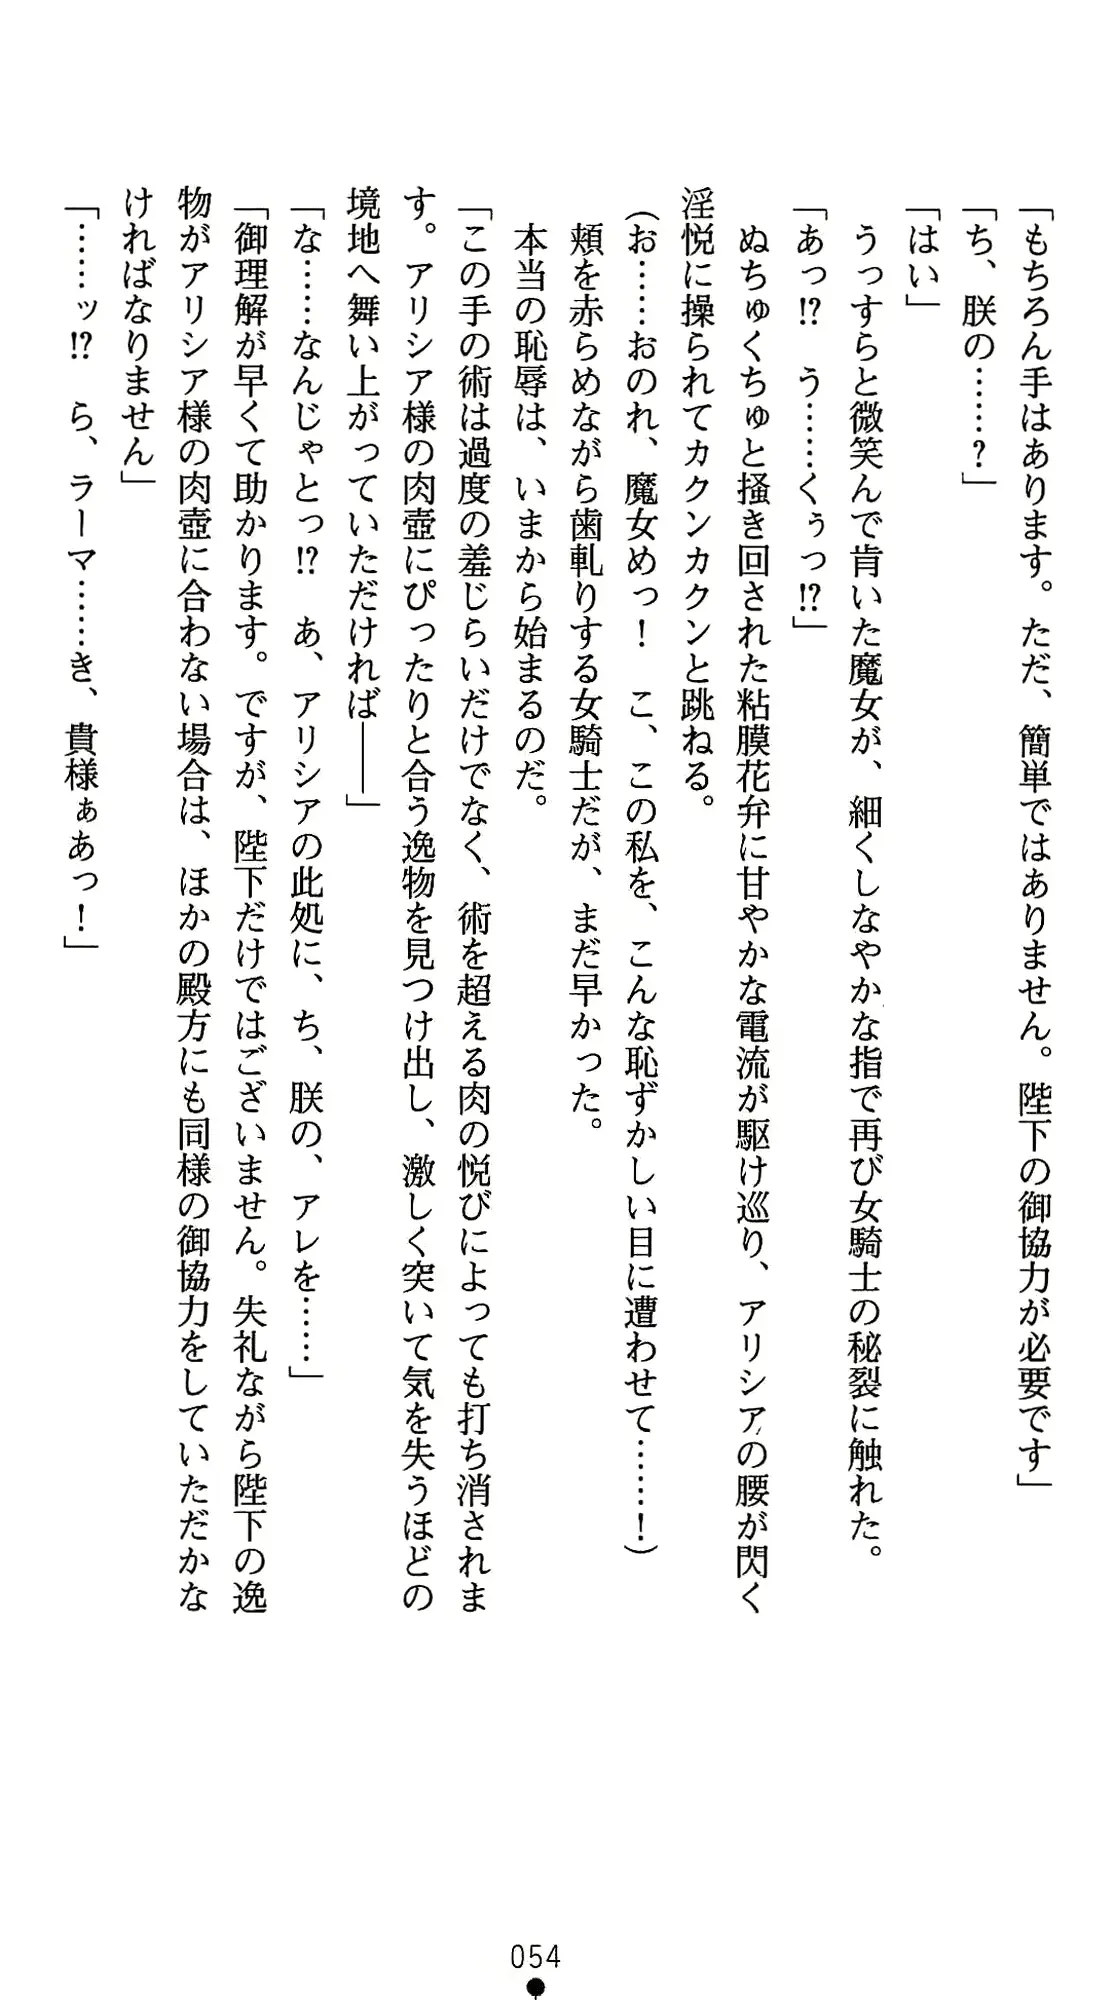 「もちろん手はあります。ただ、簡単ではありません。陛下の御協力が必要です」
「ち、朕の……？」
「はい」
　うっすらと微笑んで肯いた魔女が、細くしなやかな指で再び女騎士の秘裂に触れた。
「あっ!?　う……くぅっ!?」
　ぬちゅくちゅと掻き回された粘膜花弁に甘やかな電流が駆け巡り、アリシアの腰が閃く
淫悦に操られてカクンカクンと跳ねる。
（お……おのれ、魔女めっ！　こ、この私を、こんな恥ずかしい目に遭わせて……！）
　頬を赤らめながら歯軋りする女騎士だが、まだ早かった。
　本当の恥辱は、いまから始まるのだ。
「この手の術は過度の羞じらいだけでなく、術を超える肉の悦びによっても打ち消されま
す。アリシア様の肉壺にぴったりと合う逸物を見つけ出し、激しく突いて気を失うほどの
境地へ舞い上がっていただければ――」
「な……なんじゃとっ!?　あ、アリシアの此処に、ち、朕の、アレを……」
「御理解が早くて助かります。ですが、陛下だけではございません。失礼ながら陛下の逸
物がアリシア様の肉壺に合わない場合は、ほかの殿方にも同様の御協力をしていただかな
ければなりません」
「……ッ!?　ら、ラーマ……き、貴様ぁあっ！」
054